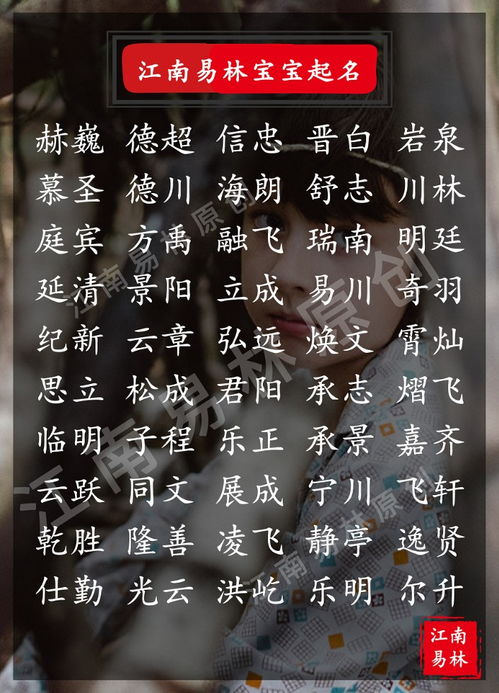 江南易林宝宝起名
赫巍 德超 信忠 晋白 岩泉
慕圣 德川 海朗 舒志 川林
庭宾 方禹 融飞 瑞南 明廷
延清 景阳 立成 易川 奇羽
纪新 云章 弘远 焕文 霄灿
思立 松成 君阳 承志 熠飞
临明 子程 乐正 承景 嘉齐
云跃 同文 展成 宁川 飞轩
乾胜 隆善 凌飞 静亭 逸贤
仕勤 光云 洪屹 乐明 尔升
江南易林原创
江南易林原创
江南易林原创
江南
易林